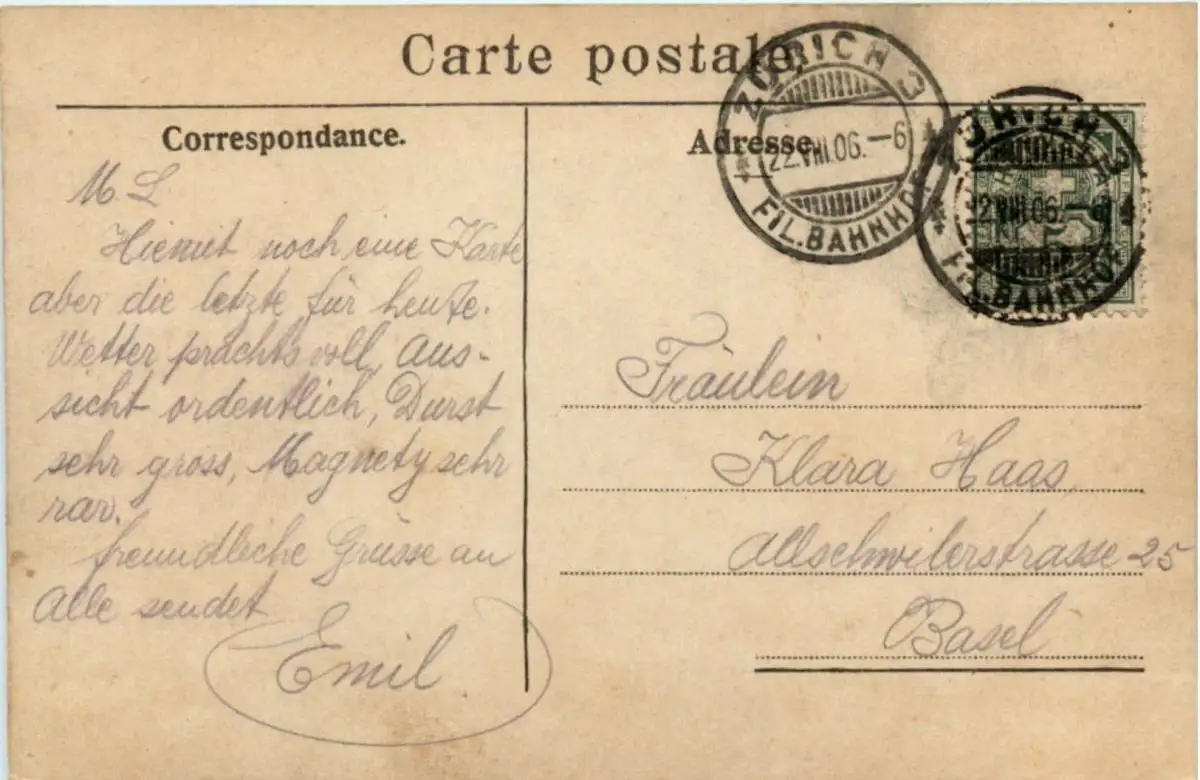 Carte postale
ZÜRICH 3
22.VIII.06.—6
FIL. BAHNHOF
ZÜRICH 3
22.VIII.06.—6
FIL. BAHNHOF
Correspondance.
Adresse.
M. L
Hiemit noch eine Karte
aber die letzte für heute.
Wetter prachtsvoll, Aus-
sicht ordentlich, Durst
sehr gross, Magnety sehr
rar.
freundliche Grüsse an
Alle sendet
Emil.
Fräulein
Klara Haas
Allschwilerstrasse 25
Basel